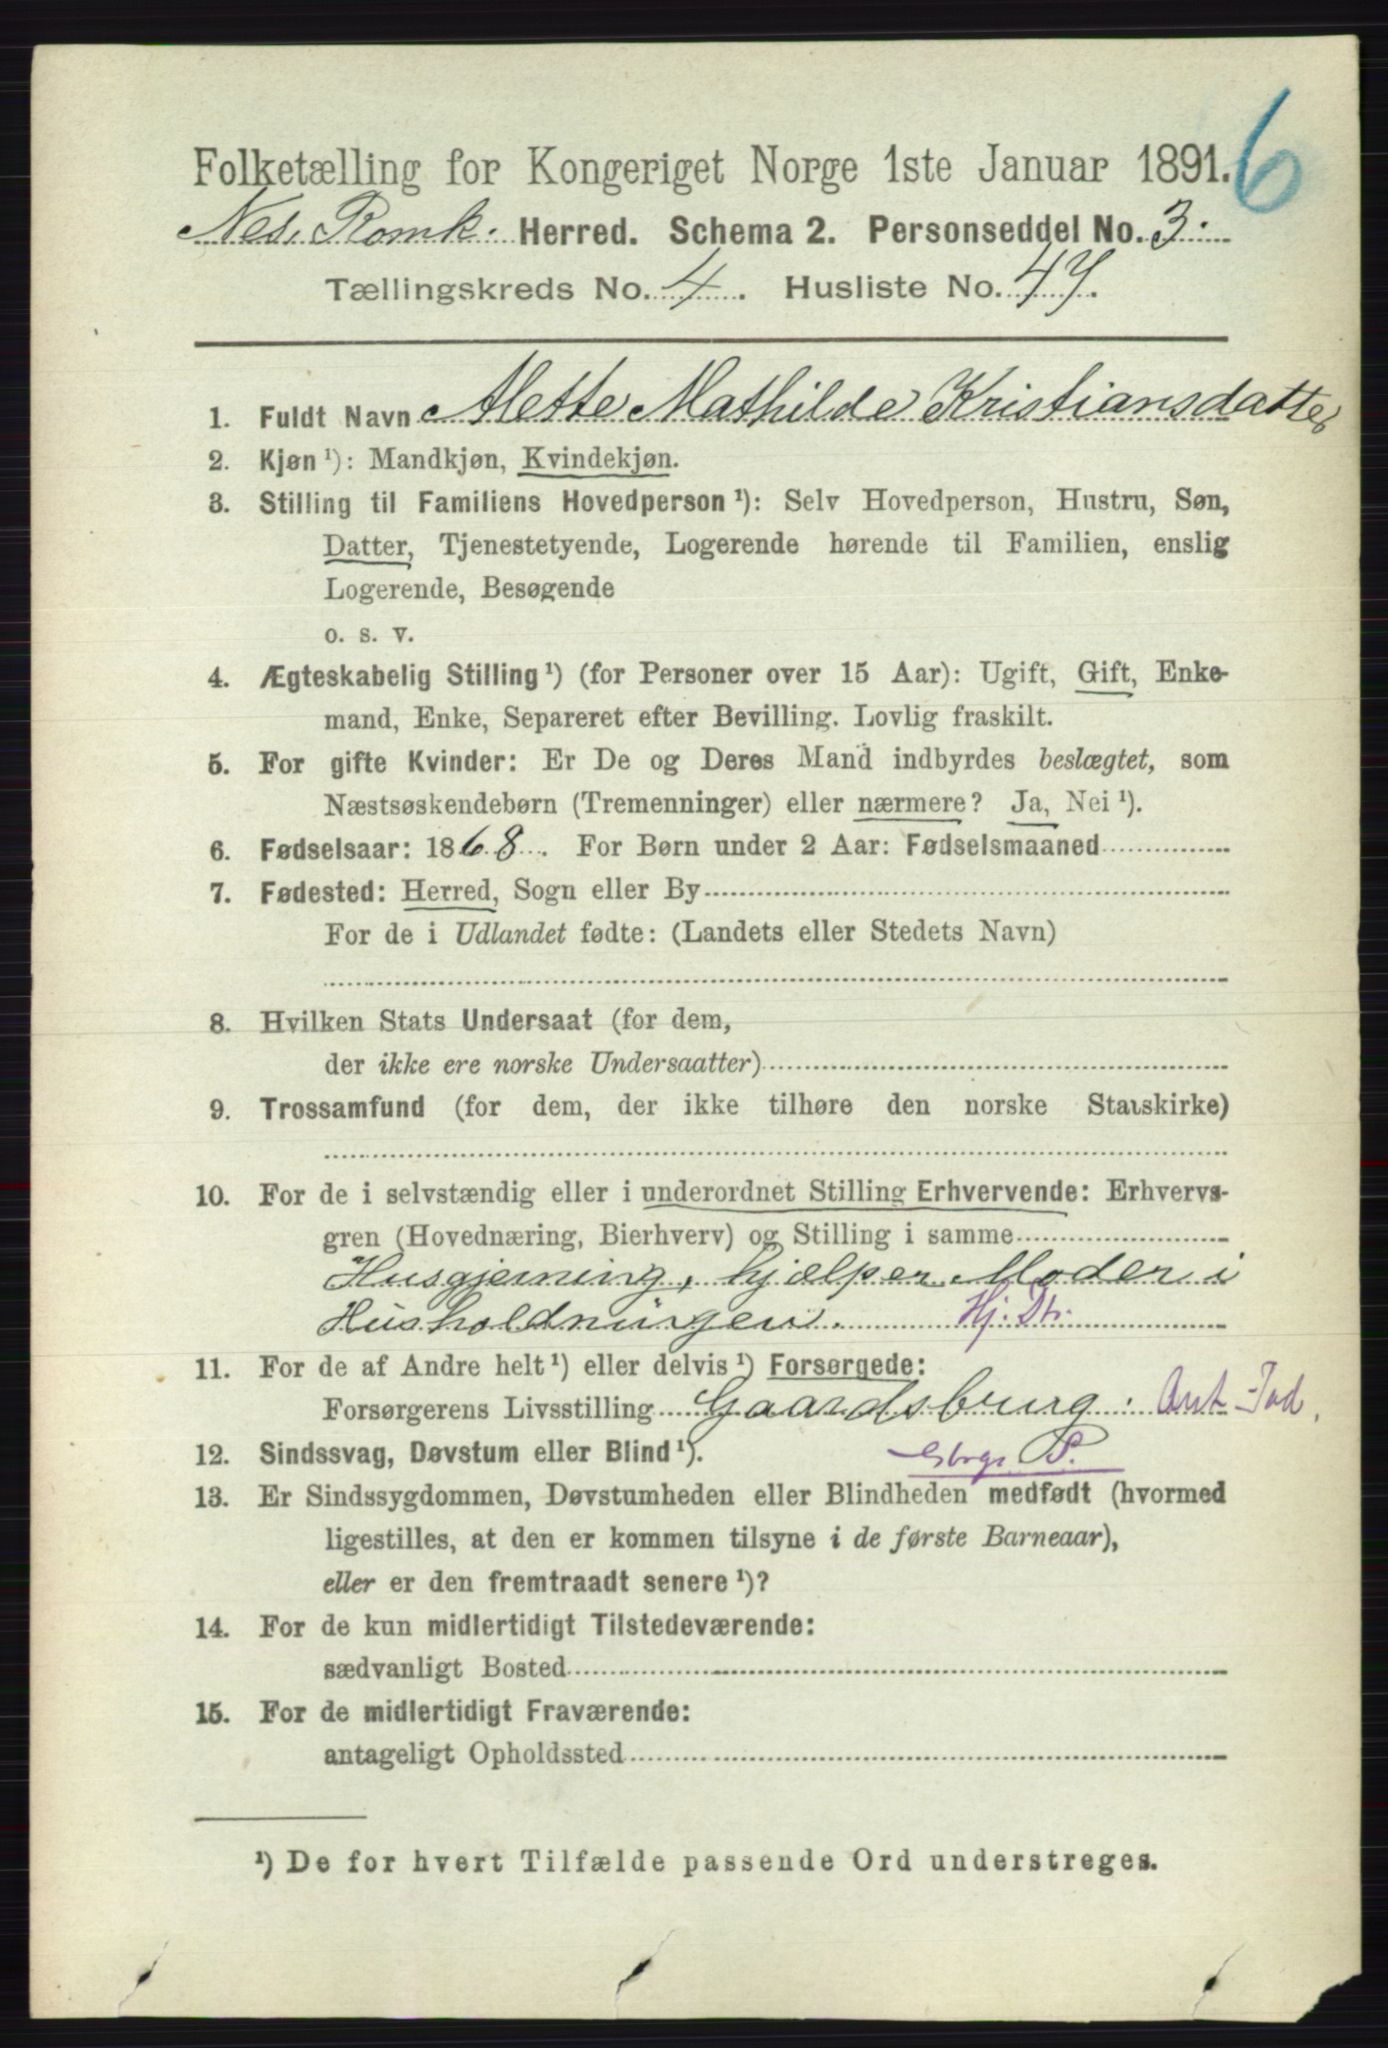 6
Folketælling for Kongeriget Norge 1ste Januar 1891.
Nes, Romk. Herred. Schema 2. Personseddel No. 3.
Tællingskreds No. 4. Husliste No. 47.
1. Fuldt Navn Mette Mathilde Kristiansdatter
2. Kjøn ¹): Mandkjøn, Kvindekjøn.
3. Stilling til Familiens Hovedperson ¹): Selv Hovedperson, Hustru, Søn,
Datter, Tjenestetyende, Logerende hørende til Familien, enslig
Logerende, Besøgende
o. s. v.
4. Ægteskabelig Stilling ¹) (for Personer over 15 Aar): Ugift, Gift, Enke-
mand, Enke, Separeret efter Bevilling. Lovlig fraskilt.
5. For gifte Kvinder: Er De og Deres Mand indbyrdes beslægtet, som
Næstsøskendebørn (Tremenninger) eller nærmere? Ja, Nei ¹).
6. Fødselsaar: 1868. For Børn under 2 Aar: Fødselsmaaned
7. Fødested: Herred, Sogn eller By
For de i Udlandet fødte: (Landets eller Stedets Navn)
8. Hvilken Stats Undersaat (for dem,
der ikke ere norske Undersaatter)
9. Trossamfund (for dem, der ikke tilhøre den norske Statskirke)
10. For de i selvstændig eller i underordnet Stilling Erhvervende: Erhvervs-
gren (Hovednæring, Bierhverv) og Stilling i samme
Husgjerning, hjælper Moder i
Husholdningen. Hj. Dt.
11. For de af Andre helt ¹) eller delvis ¹) Forsørgede:
Forsørgerens Livsstilling Gaardsbrug.
12. Sindssvag, Døvstum eller Blind ¹).
13. Er Sindssygdommen, Døvstumheden eller Blindheden medfødt (hvormed
ligestilles, at den er kommen tilsyne i de første Barneaar),
eller er den fremtraadt senere ¹)?
14. For de kun midlertidigt Tilstedeværende:
sædvanligt Bosted
15. For de midlertidigt Fraværende:
antageligt Opholdssted
¹) De for hvert Tilfælde passende Ord understreges.